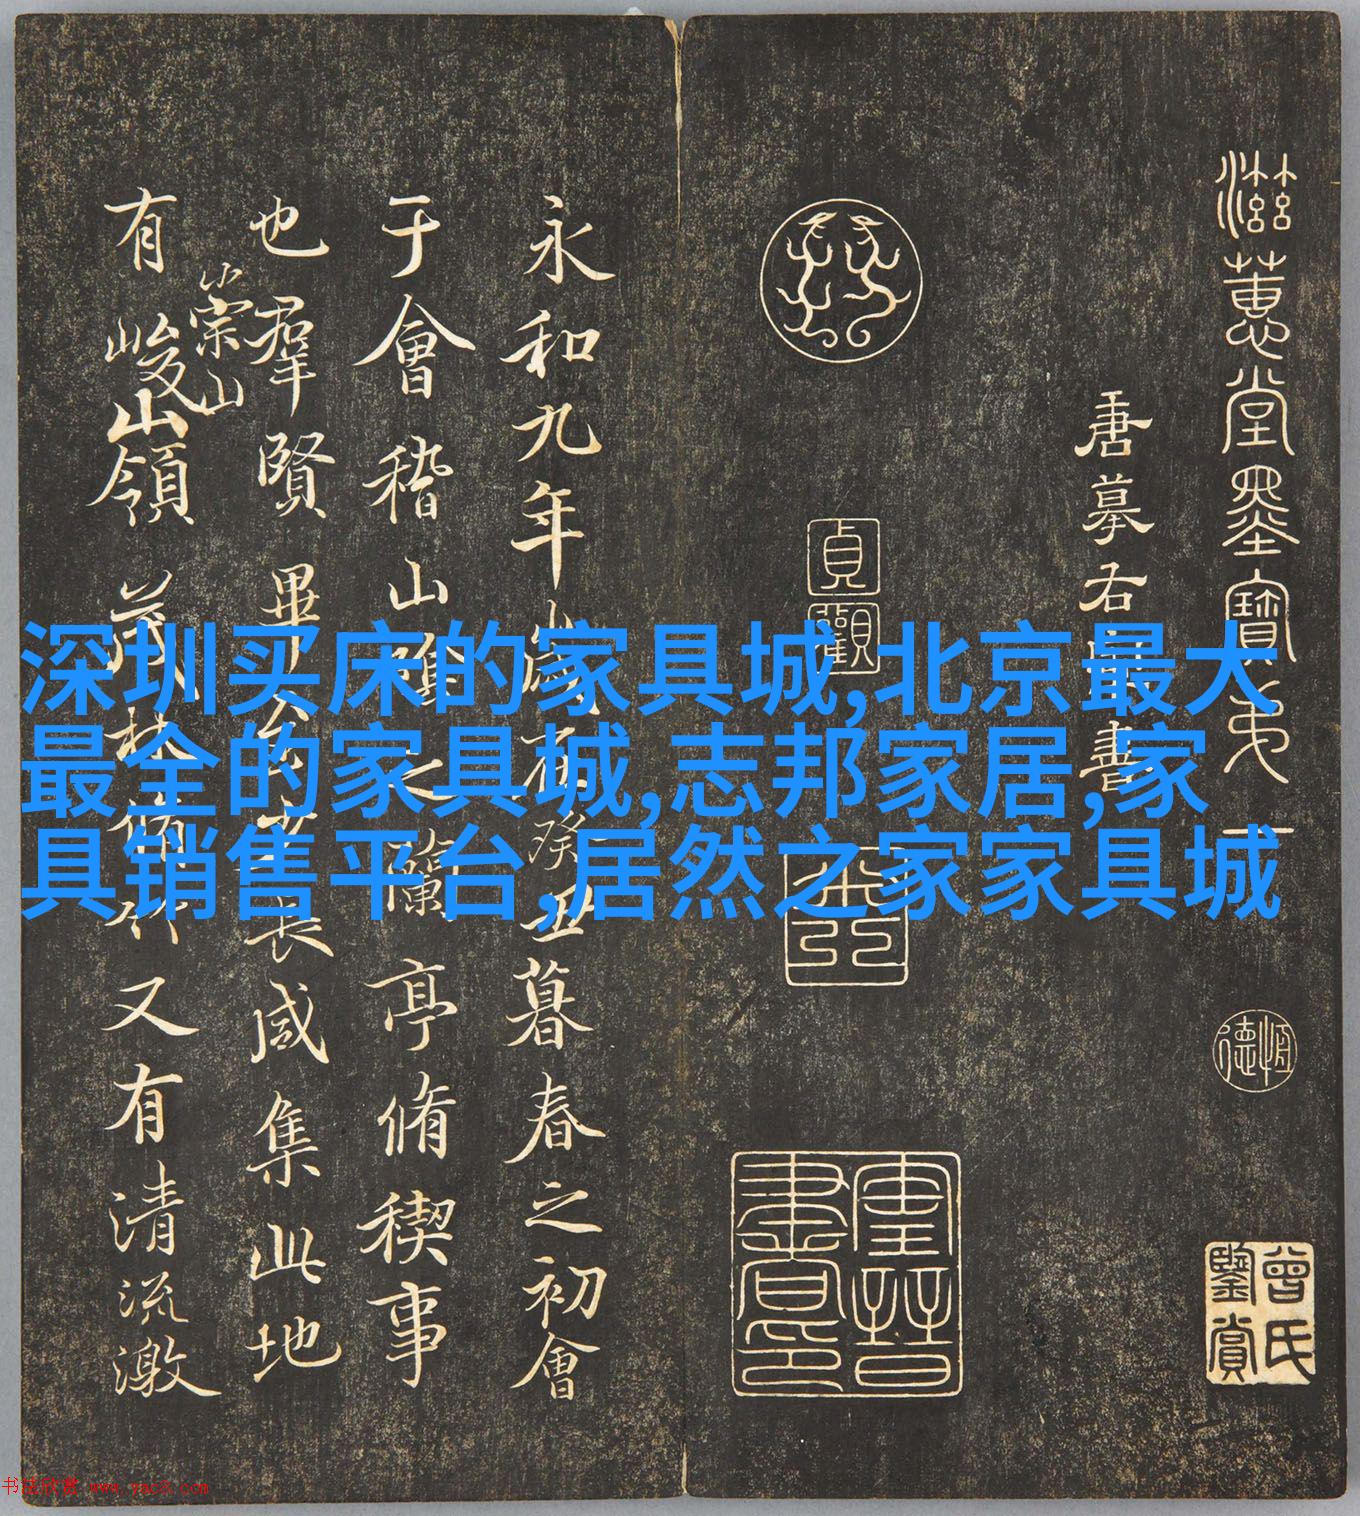 滋蕙堂墨寶弟一
唐摹右軍書
恒德
曾氏鑒賞
貞觀
永和九年歲在癸丑暮春之初會
于會稽山陰之蘭亭脩稧事
也羣賢畢至少長咸集此地
有崇山
峻山領茂林脩竹又有清流激
深圳买床的家具城,北京最大
最全的家具城,志邦家居,家
具销售平台,居然之家家具城
书法欣赏 www.yac8.com